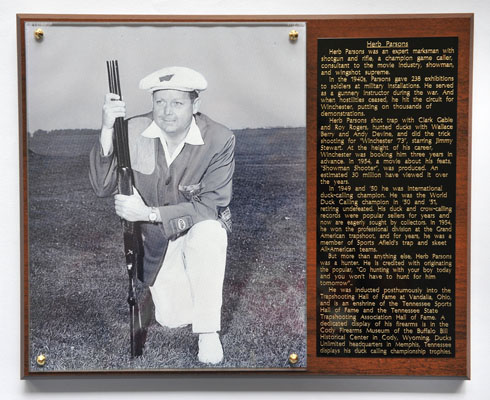 Herb Parsons
Herb Parsons was an expert marksman with
shotgun and rifle, a champion game caller,
consultant to the movie industry, showman,
and wingshot supreme.
In the 1940s, Parsons gave 238 exhibitions
to soldiers at military installations. He served
as a gunnery instructor during the war. And
when hostilities ceased, he hit the circuit for
Winchester, putting on thousands of
demonstrations.
Herb Parsons shot trap with Clark Gable
and Roy Rogers, hunted ducks with Wallace
Berry and Andy Devine, and did the trick
shooting for "Winchester '73", starring Jimmy
Stewart. At the height of his career,
Winchester was booking him three years in
advance. In 1954, a movie about his feats,
"Showman Shooter", was produced. An
estimated 30 million have viewed it over
the years.
In 1949 and '50 he was International
duck-calling champion. He was the World
Duck Calling champion in '50 and '51,
retiring undefeated. His duck and crow-calling
records were popular sellers for years and
now are eagerly sought by collectors. In 1954,
he won the professional division at the Grand
American trapshoot, and for years, he was a
member of Sports Afield's trap and skeet
All-American teams.
But more than anything else, Herb Parsons
was a hunter. He is credited with originating
the popular, "Go hunting with your boy today
and you won't have to hunt for him
tomorrow".
He was inducted posthumously into the
Trapshooting Hall of Fame at Vandalia, Ohio,
and is an enshrine of the Tennessee Sports
Hall of Fame and the Tennessee State
Trapshooting Association Hall of Fame. A
dedicated display of his firearms is in the
Cody Firearms Museum of the Buffalo Bill
Historical Center in Cody, Wyoming. Ducks
Unlimited headquarters in Memphis, Tennessee
displays his duck calling championship trophies.